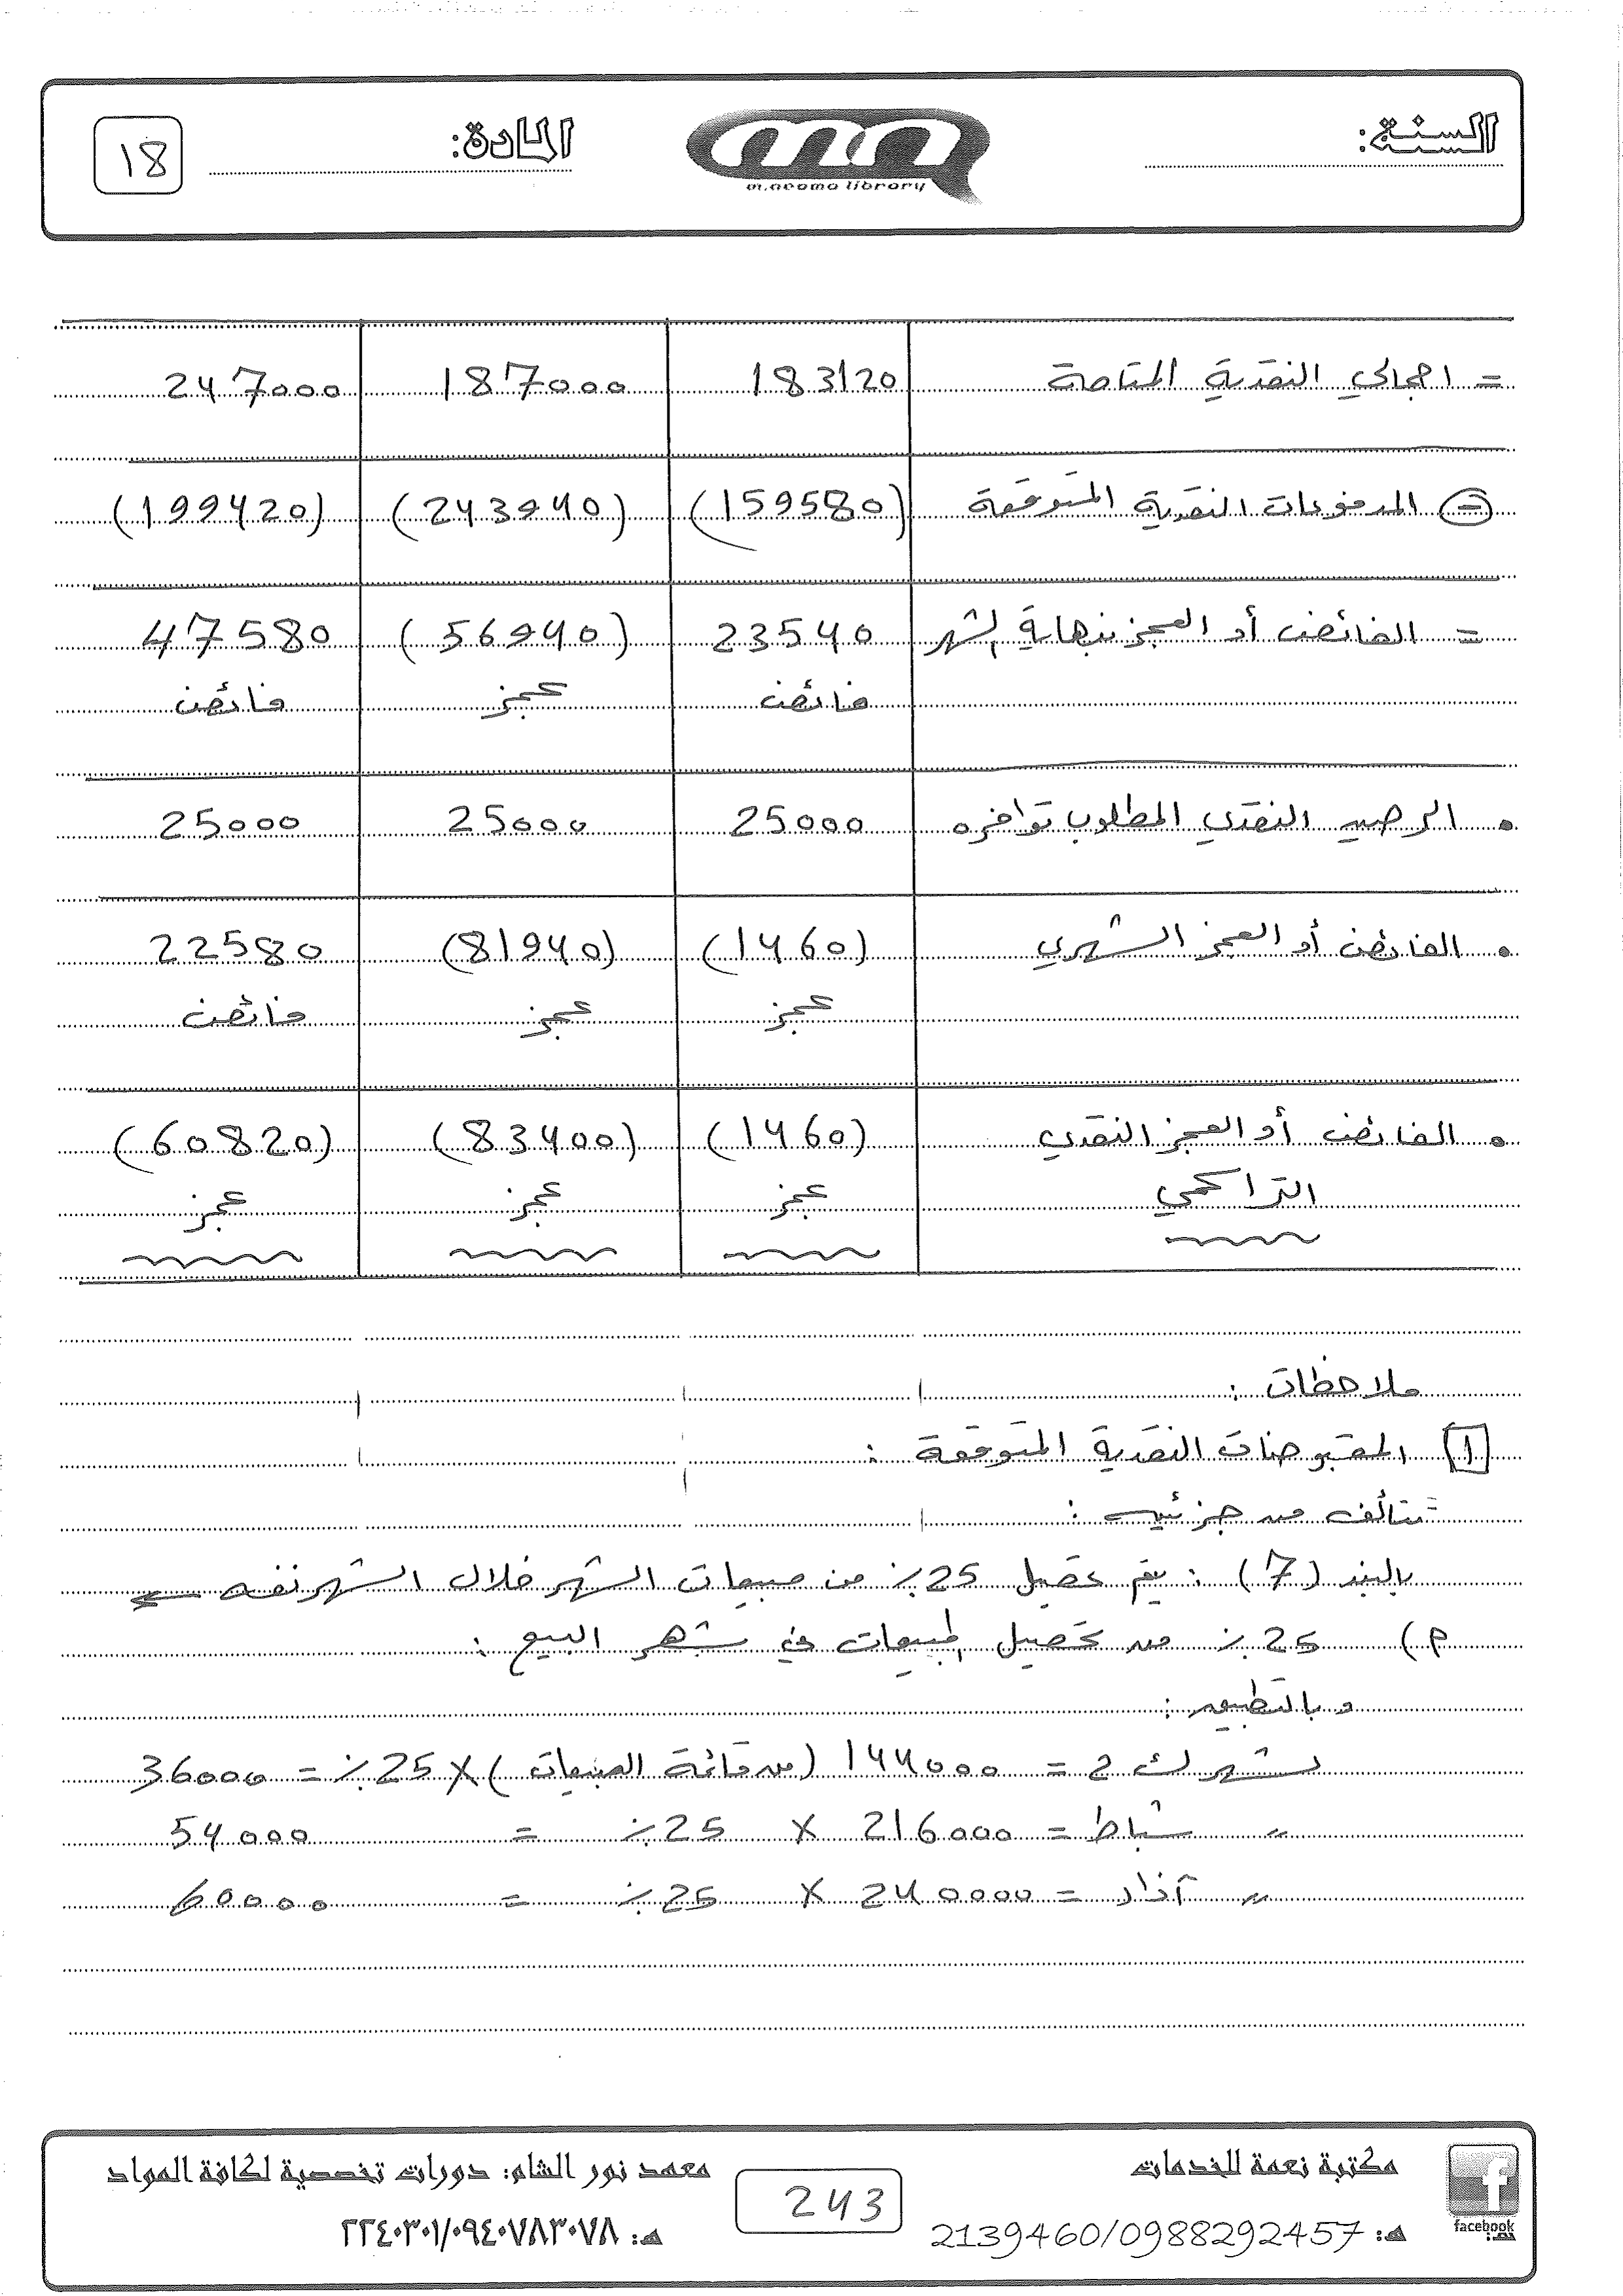 السنة:
m.neoma library
المادة:
18
= اجمالي النقدية المتاحة 183120 187000 247000
(-) المدفوعات النقدية المتوقعة (159580) (243940) (199420)
= الفائض أو العجز بنهاية الشهر 23540 (56940) 47580
فائض عجز فائض
• الرصيد النقدي المطلوب توافره 25000 25000 25000
• الفائض أو العجز الشهري (1460) (81940) 22580
عجز عجز فائض
• الفائض أو العجز النقدي (1460) (83400) (60820)
التراكمي عجز عجز عجز
ملاحظات :
1 المقبوضات النقدية المتوقعة :
تتألف من جزئين :
بالبند (7) : يتم تحصيل 25٪ من مبيعات الشهر خلال الشهر نفسه ←
م) 25٪ من تحصيل المبيعات في شهر البيع :
و بالتطبيق :
لشهر ك2 = 144000 (من قائمة المبيعات) × 25٪ = 36000
〃 شباط = 216000 × 25٪ = 54000
〃 آذار = 240000 × 25٪ = 60000
facebook
مكتبة نعمة للخدمات
هـ: 2139460/0988292457
243
معهد نور الشام: دورات تخصصية لكافة المواد
هـ: ٢٢٤٠٣٠١/٠٩٤٠٧٨٣٠٧٨